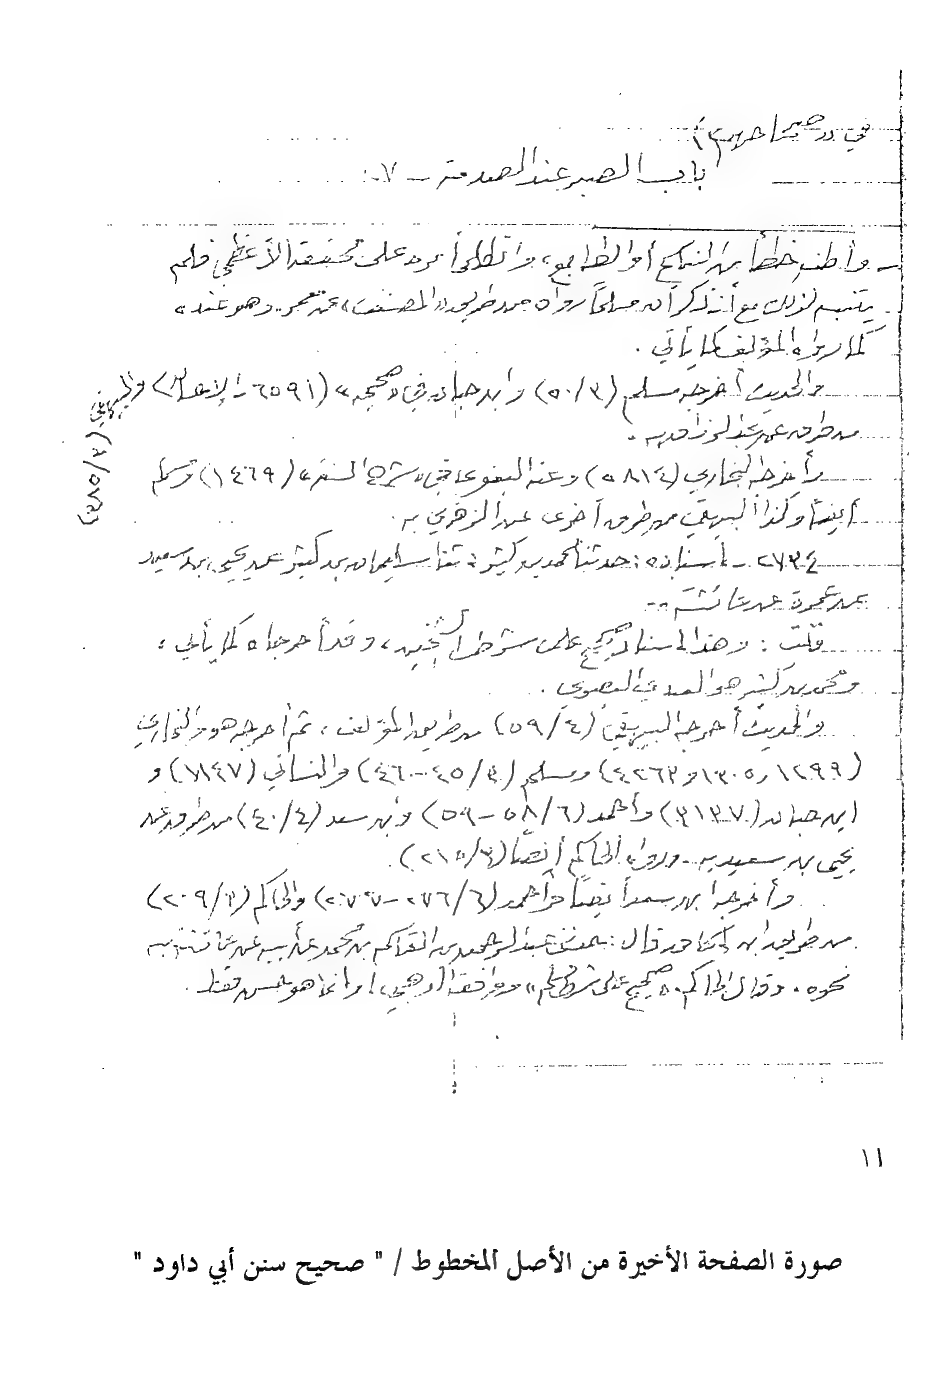 باب الصبر عند الصدمة - ٧٠
- وأظنه خطأ من الناسخ أو الطابع، وانطلى أمره على محققه الأعظمي فلم
يتنبه لذلك مع أنه ذكر أن مسلماً رواه من طريق «المصنف» عن معمر. وهو عنده
كما رواه المؤلف كما يأتي.
والحديث أخرجه مسلم (٥٠/٣) وابن حبان في «صحيحه» (٦٥٩١ - الإحسان) والبيهقي
من طرق عن عبد الرزاق به.
وأخرجه البخاري (٥٨١٤) وعنه البغوي في «شرح السنة» (١٤٦٩) ومسلم
أيضاً وكذا البيهقي من طرق أخرى عن الزهري به.
٢٧٣٤ - إسناده: حدثنا محمد بن كثير: ثنا سليمان بن كثير عن يحيى بن سعيد
عن عمرة عن عائشة..
قلت: وهذا إسناد صحيح على شرط الشيخين، وقد أخرجاه كما يأتي،
ومحمد بن كثير هو العبدي البصري.
والحديث أخرجه البيهقي (٥٩/٤) من طريق المؤلف، ثم أخرجه هو والبخاري
(١٢٩٩ و١٣٠٥ و٤٢٦٣) ومسلم (٤٥/٣-٤٦) والنسائي (٧١٤٧) و
ابن حبان (٣١٣٧) وأحمد (٥٨/٦ - ٥٩) وابن سعد (٤٠/٤) من طرق عن
يحيى بن سعيد به. ورواه الحاكم أيضاً (٢١٥/٣).
وأخرجه ابن سعد أيضاً وأحمد (٢٧٦/٦ - ٢٧٧) والحاكم (٢٠٩/٣)
من طريق ابن إسحاق قال: حدثني عبد الرحمن بن القاسم بن محمد عن أبيه عن عائشة به
نحوه. وقال الحاكم: «صحيح على شرط مسلم» ووافقه الذهبي! وإنما هو حسن فقط.
١١
صورة الصفحة الأخيرة من الأصل المخطوط / " صحيح سنن أبي داود "